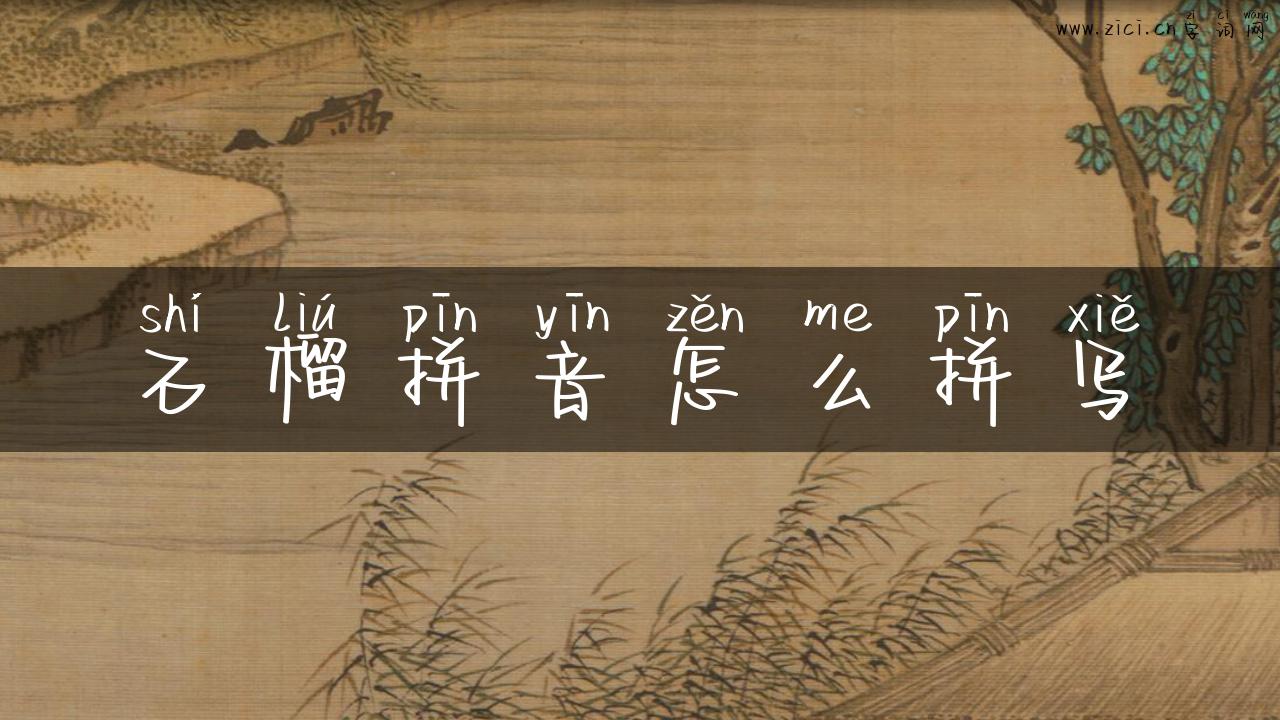 zì cí wǎng
www.zici.cn 字 词 网
shí liú pīn yīn zěn me pīn xiě
石 榴 拼 音 怎 么 拼 写